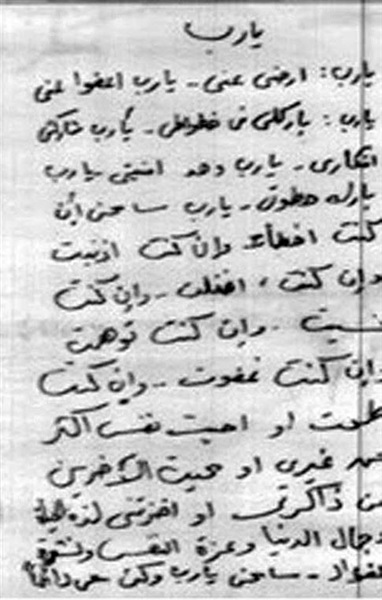 يارب
يارب: ارضى عنى - يارب اعفوا عنى
يارب: باركلى فى خطواطى - يارب شاركنى
افكارى - يارب وحد امنيتى - يارب
بارك خطوتى - يارب سامحنى إن
كنت أخطأت وإن كنت اذنبت
وإن كنت اغفلت - وإن كنت
نسيت - وإن كنت توهمت
وإن كنت غفوت - وإن كنت
طمعت او احببت نفسى اكثر
من غيرى او محيت الآخرين
من ذاكرتى او اخذتنى لذة الحياة
وجمال الدنيا وعزة النفس ونشوة
الفؤاد - سامحنى يارب وكن معى دائماً